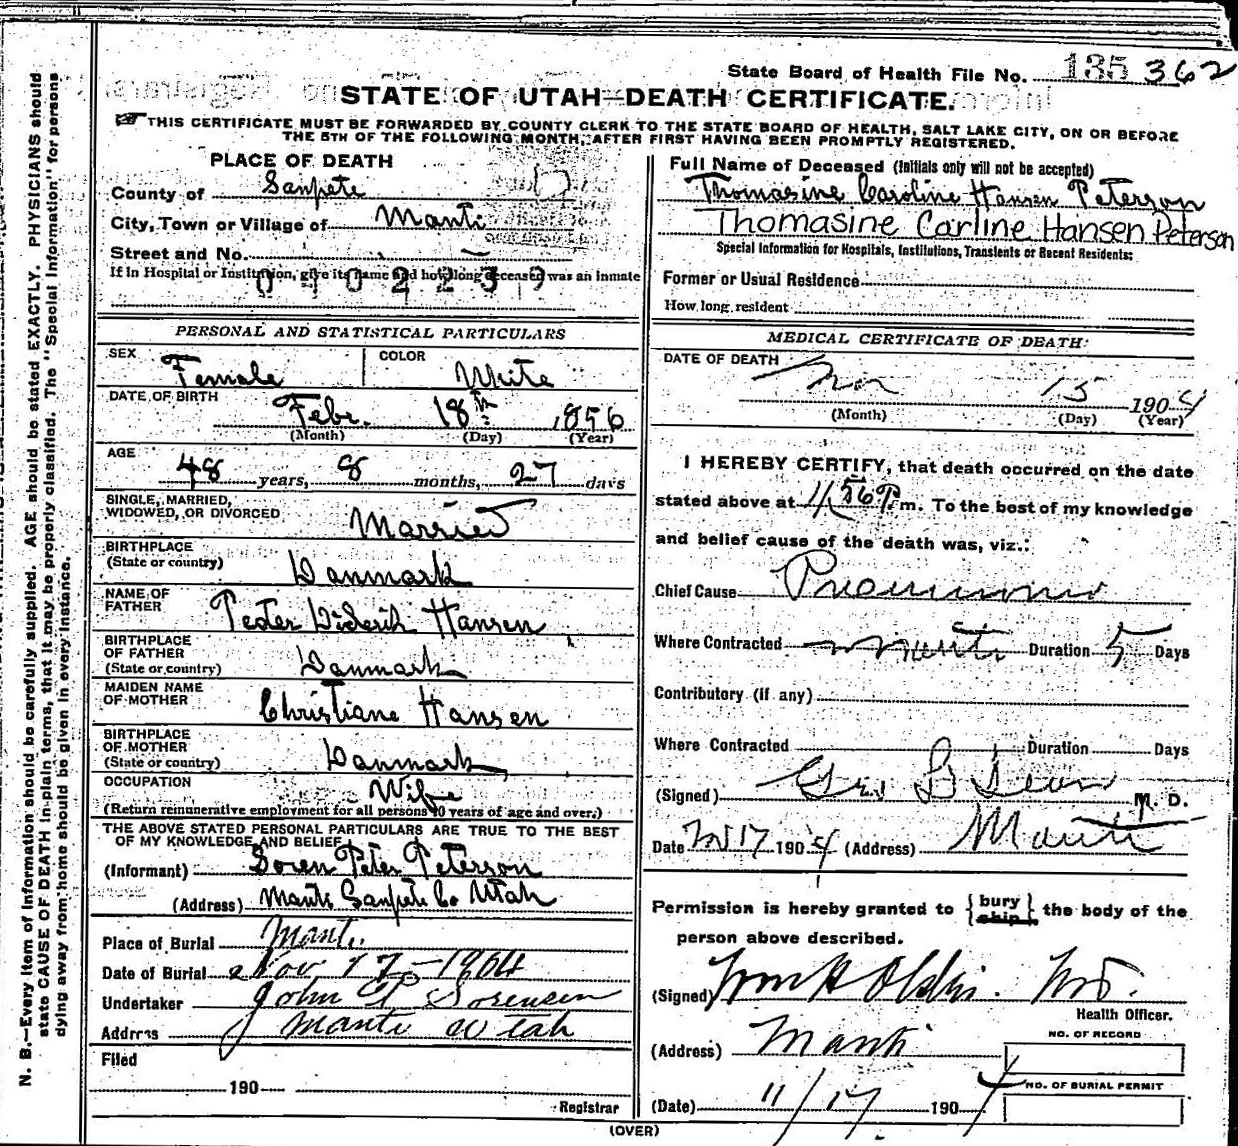 State Board of Health File No. 135 362
STATE OF UTAH—DEATH CERTIFICATE.
THIS CERTIFICATE MUST BE FORWARDED BY COUNTY CLERK TO THE STATE BOARD OF HEALTH, SALT LAKE CITY, ON OR BEFORE
THE 5TH OF THE FOLLOWING MONTH, AFTER FIRST HAVING BEEN PROMPTLY REGISTERED.
PLACE OF DEATH
County of Sanpete
City, Town or Village of Manti
Street and No. —
If in Hospital or Institution, give its name and how long deceased was an inmate
0402239
PERSONAL AND STATISTICAL PARTICULARS
SEX Female COLOR White
DATE OF BIRTH Febr. 18th 1856
(Month) (Day) (Year)
AGE 48 years, 8 months, 27 days
SINGLE, MARRIED,
WIDOWED, OR DIVORCED Married
BIRTHPLACE
(State or country) Danmark
NAME OF
FATHER Peder Diderik Hansen
BIRTHPLACE
OF FATHER
(State or country) Danmark
MAIDEN NAME
OF MOTHER Christiane Hansen
BIRTHPLACE
OF MOTHER
(State or country) Danmark
OCCUPATION Wife
(Return remunerative employment for all persons 10 years of age and over.)
THE ABOVE STATED PERSONAL PARTICULARS ARE TRUE TO THE BEST
OF MY KNOWLEDGE AND BELIEF
(Informant) Soren Peter Peterson
(Address) Manti Sanpete Co Utah
Place of Burial Manti
Date of Burial Nov 17 – 1904
Undertaker John P Sorensen
Address Manti Utah
Filed
190
Registrar
Full Name of Deceased (Initials only will not be accepted)
Thomasine Caroline Hansen Peterson
Thomasine Carline Hansen Peterson
Special Information for Hospitals, Institutions, Transients or Recent Residents:
Former or Usual Residence
How long resident
MEDICAL CERTIFICATE OF DEATH:
DATE OF DEATH Nov 15 1904
(Month) (Day) (Year)
I HEREBY CERTIFY, that death occurred on the date
stated above at 11 56 P. m. To the best of my knowledge
and belief cause of the death was, viz.:
Chief Cause Pneumonia
Where Contracted Manti Duration 5 Days
Contributory (if any)
Where Contracted Duration Days
(Signed) Geo M. D.
Date Nov 17 1904 (Address) Manti
Permission is hereby granted to {bury ship} the body of the
person above described.
(Signed) Wm H Olsten MD.
Health Officer.
(Address) Manti
NO. OF RECORD
NO. OF BURIAL PERMIT
(Date) 11/17 1904
(OVER)
N. B.—Every item of information should be carefully supplied. AGE should be stated EXACTLY. PHYSICIANS should
state CAUSE OF DEATH in plain terms, that it may be properly classified. The "Special Information" for persons
dying away from home should be given in every instance.